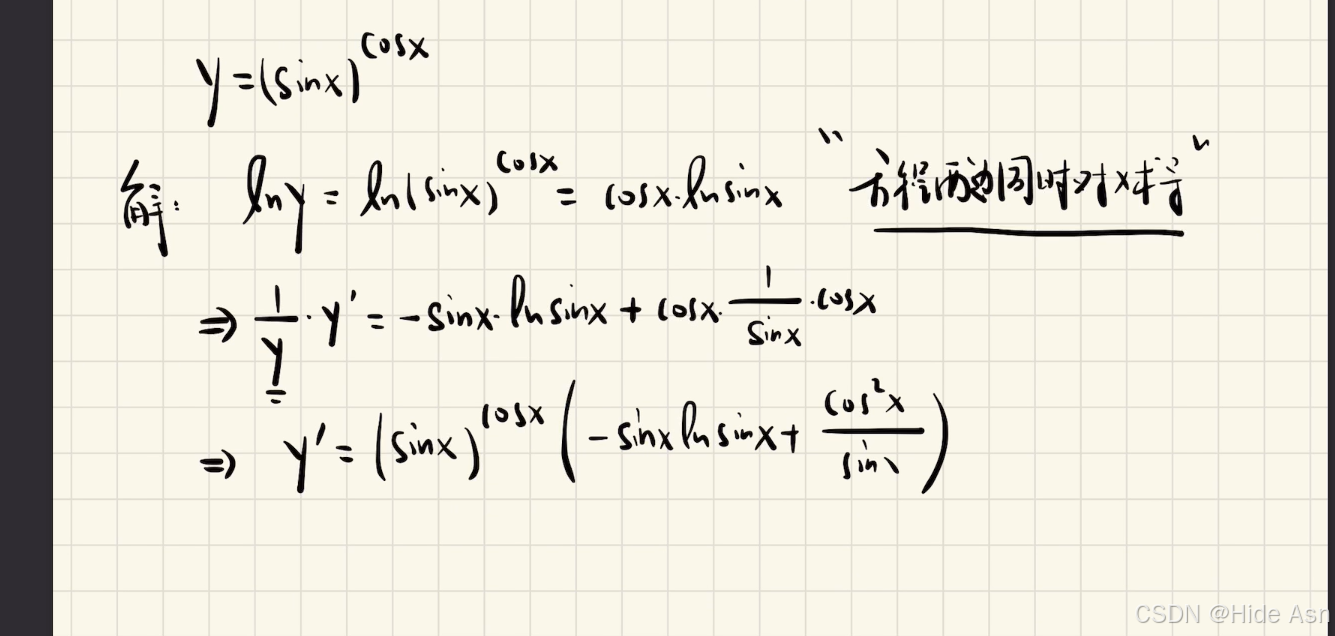 y=(sinx)^cosx
解: lny = ln(sinx)^cosx = cosx·lnsinx "方程两边同时对x求导"
⇒ 1/y · y' = -sinx·lnsinx + cosx·1/sinx·cosx
⇒ y' = (sinx)^cosx (-sinxlnsinx+ cos²x/sinx)
CSDN @Hide Asn